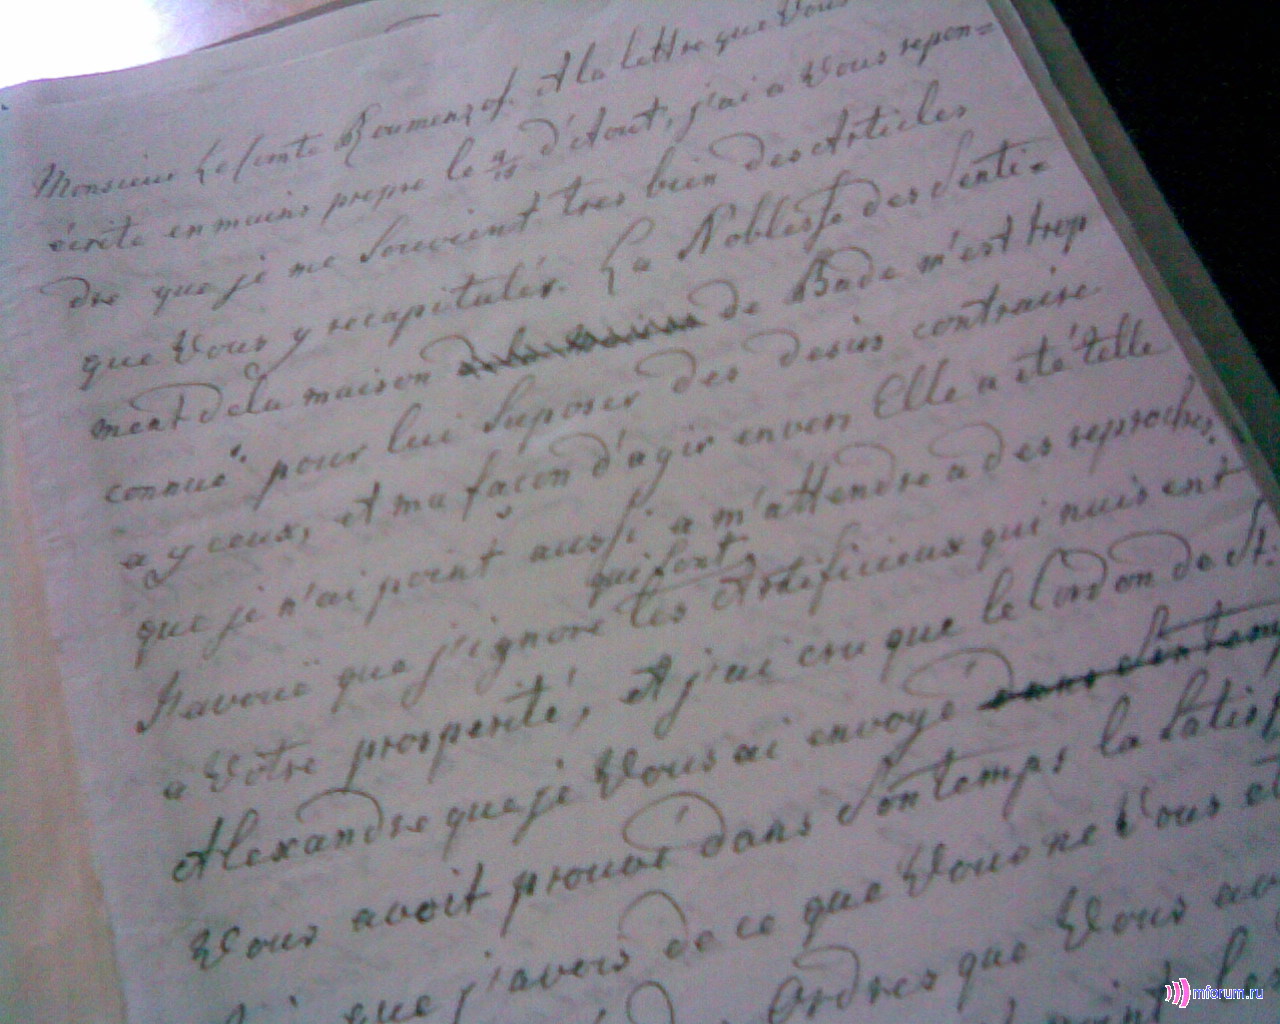 Monsieur Le Comte Roumenzof. A la lettre que Vous
écrite en mains propre le 4/15 d'Aout, j'ai a Vous repon=
dre que je me souvient tres bien des Articles
que Vous y recapitulés. La Noblesse des Senti=
ment de la maison de Bade m'est trop
connuë pour lui suposer des desirs contraire
a yceux, et ma façon d'agir envers Elle a eté telle
que je n'ai point aussi a m'attendre a des reproches.
J'avouë que j'ignore qui sont les Artificieux qui nuisent
a Votre prosperité, et j'ai cru que le Cordon de St:
Alexandre que je Vous ai envoyé dans son temp
Vous avoit prouvé dans son temps la satisf
que j'avois de ce que Vous ne Vous et
Ordres que Vous av
point
mforum.ru